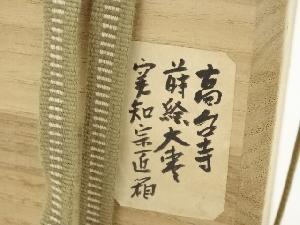 高台寺
蒔絵大棗
実知宗匠箱